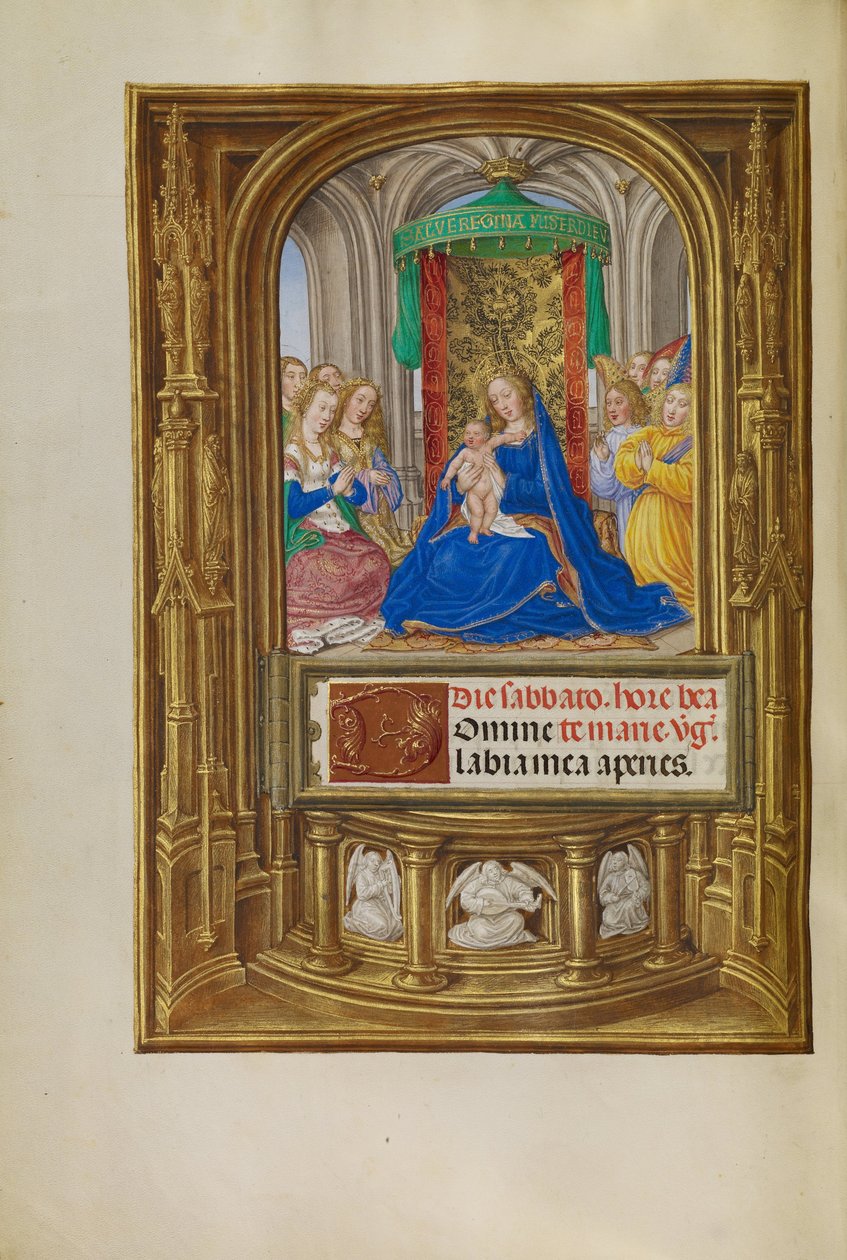 SALVE REGINA MISERDIEV
Die sabbato. hore bea
Domine te marie. v̄gꝭ.
labia mea aperies.